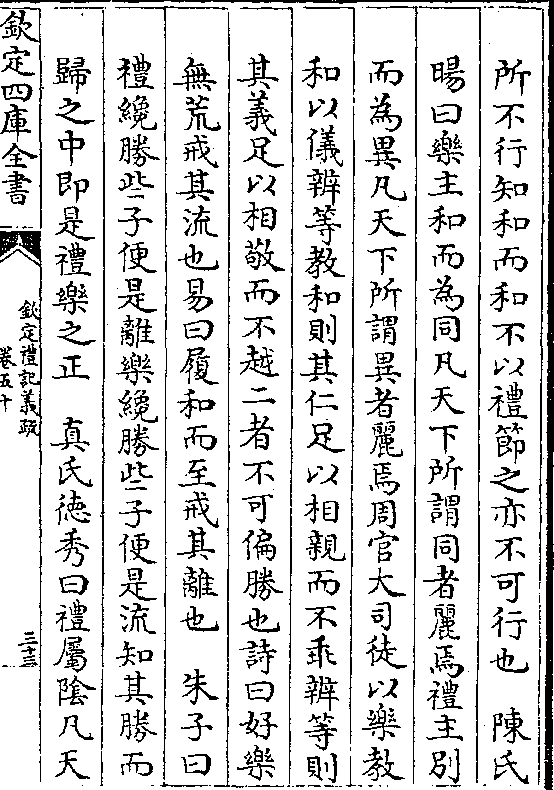 所不行知和而和不以禮節之亦不可行也　陳氏
暘曰樂主和而為同凡天下所謂同者麗焉禮主別
而為異凡天下所謂異者麗焉周官大司徒以樂教
和以儀辨等教和則其仁足以相親而不乖辨等則
其義足以相敬而不越二者不可偏勝也詩曰好樂
無荒戒其流也易曰履和而至戒其離也　朱子曰
禮纔勝些子便是離樂纔勝些子便是流知其勝而
歸之中即是禮樂之正　真氏德秀曰禮屬陰凡天
欽定四庫全書
欽定禮記義疏
卷五十
三十三